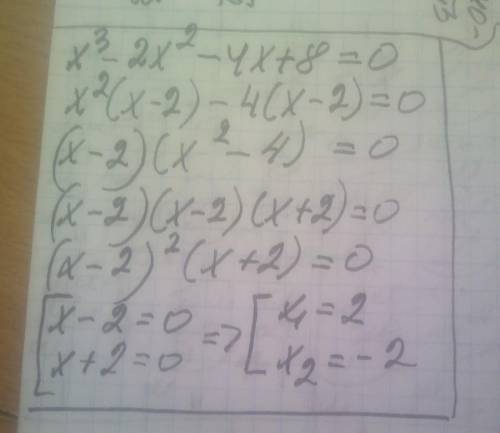 x³ - 2x² - 4x + 8 = 0
x²(x - 2) - 4(x - 2) = 0
(x - 2)(x² - 4) = 0
(x - 2)(x - 2)(x + 2) = 0
(x - 2)²(x + 2) = 0
[x - 2 = 0 => [x₁ = 2
x + 2 = 0 x₂ = -2